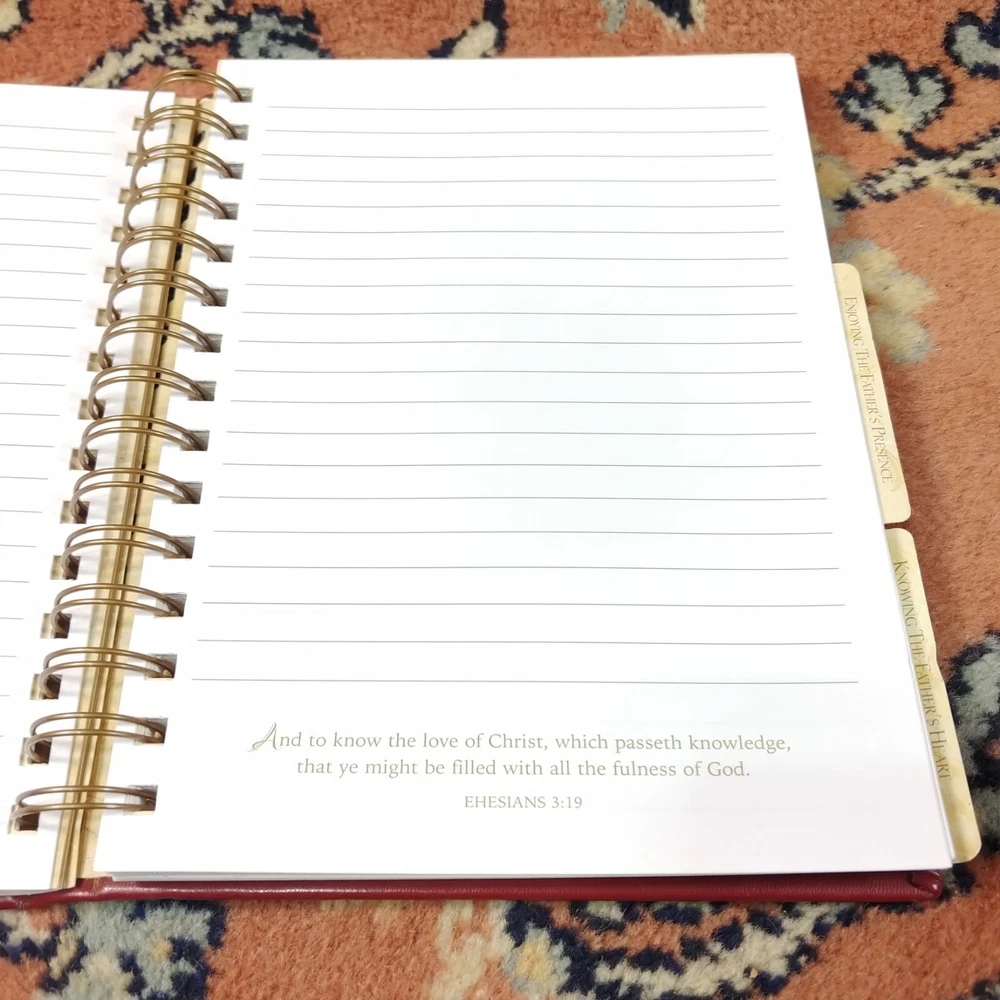 And to know the love of Christ, which passeth knowledge,
that ye might be filled with all the fulness of God.
EHESIANS 3:19
ENJOYING THE FATHER'S PRESENCE
KNOWING THE FATHER'S HEART